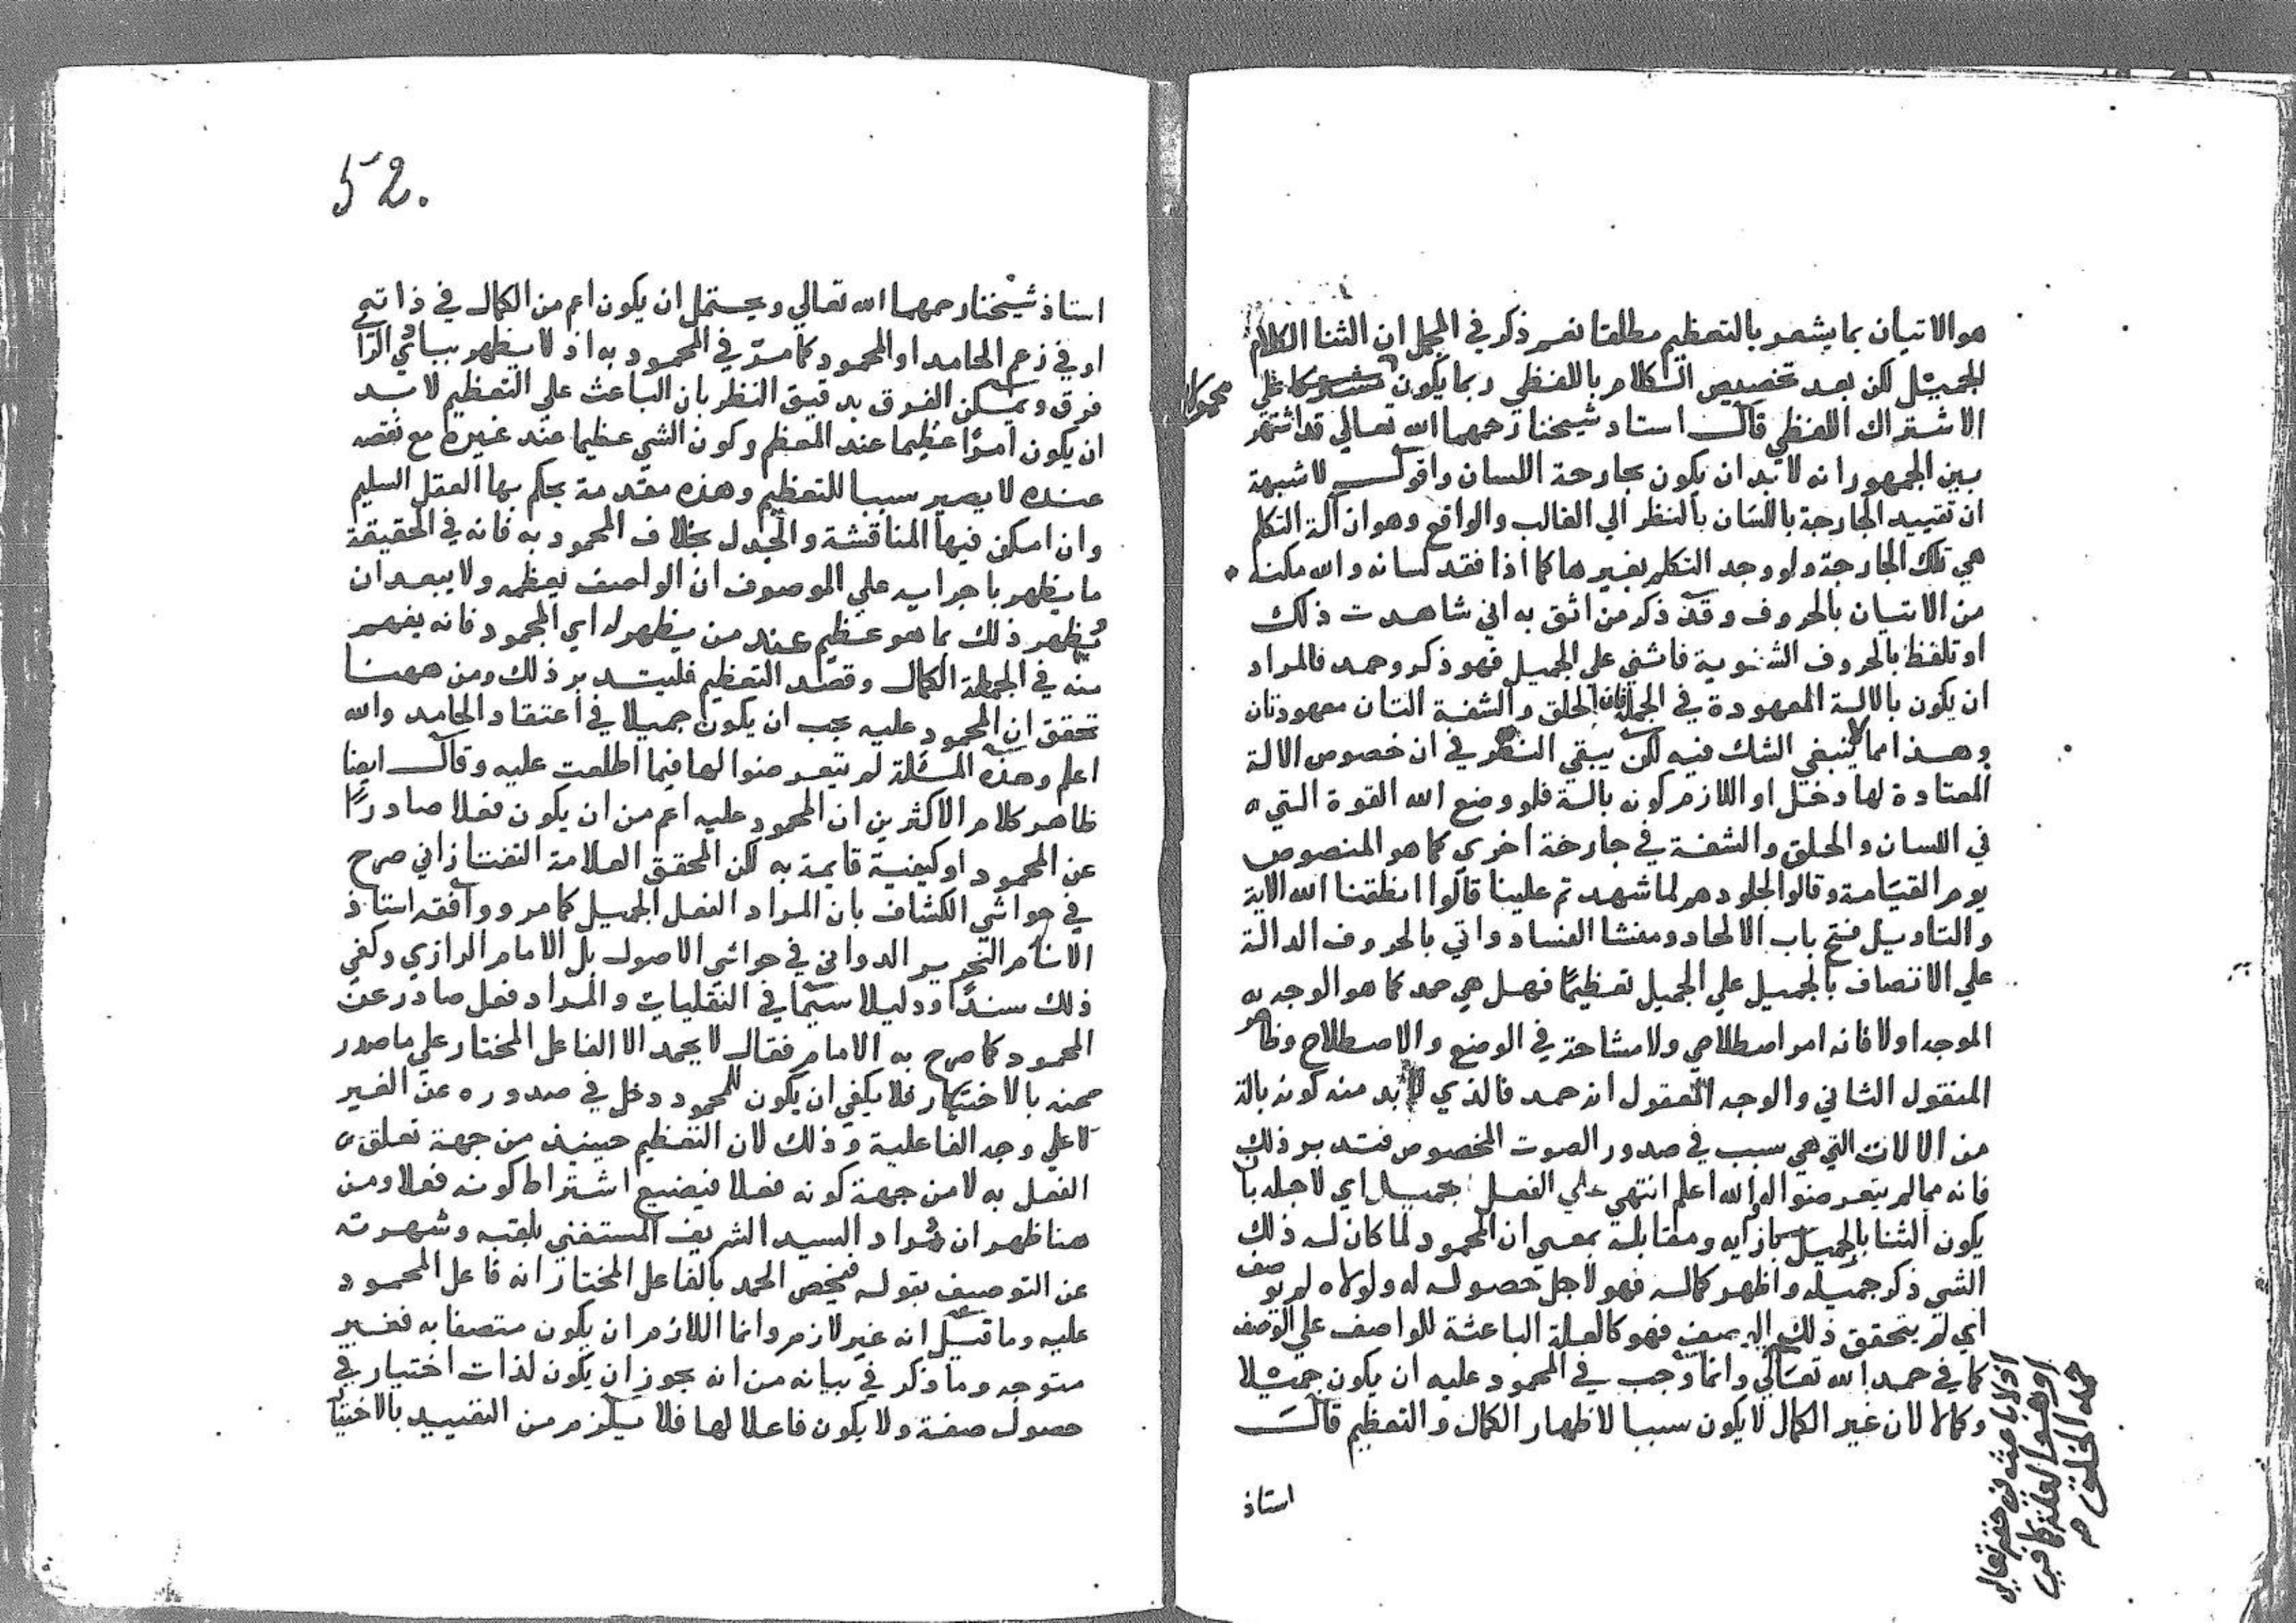 هو الاتيان بما يشعر بالتعظيم مطلقا نعم ذكر في المجمل ان الثنا الكلام
الجميل لكن بعد تخصيص الكلام باللفظي ربما يكون علي
محمولا
الاشتراك اللفظي قال استاد شيخنا رحمهما الله تعالي قد اشتهر
بين الجمهور انه لا بد ان يكون بجارحة اللسان واقول لا شبهة
ان تقييد الجارحة باللسان بالنظر الي الغالب والواقع وهو ان آلة التكلم
هي تلك الجارحة ولو وجد التكلم بغيرها كما اذا فقد لسانه والله مكنه
من الاتيان بالحروف وقد ذكر من اثق به اني شاهدت ذلك
او تلفظ بالحروف الشفوية فاثني علي الجميل فهو ذكر وحمد فالمراد
ان يكون بالالة المعهودة في الجملة فان الحلق والشفة التان معهودتان
وهذا مما لا ينبغي الشك فيه لكن يبقي النظر في ان خصوص الالة
المعتادة لها دخل او اللازم كونه بالة فلو وضع الله القوة التي
في اللسان والحلق والشفة في جارحة اخري كما هو المنصوص
يوم القيامة وقالوا لجلودهم لما شهدتم علينا قالوا انطقنا الله الاية
والتاويل فتح باب الالحاد ومنشا الفساد واتي بالحروف الدالة
علي الاتصاف بالجميل علي الجميل تعظيما فهل هي حمد كما هو الوجه به
الموجه اولا فانه امر اصطلاحي ولا مشاحة في الوضع والاصطلاح وظاهر
المنقول الثاني والوجه المعقول انه حمد فالذي لا بد منه كونه بالة
من الالات التي هي سبب في صدور الصوت المخصوص فتدبر ذلك
فانه مما لم يتعرضوا له والله اعلم انتهي علي الفعل الجميل اي لاجله بان
يكون الثنا بالجميل بازايه ومقابلة بمعني ان المحمود لما كان له ذلك
الشي ذكر جميله واظهر كماله فهو لاجل حصوله له ولولاه لم يوصف
اي لم يتحقق ذلك الوصف فهو كالعلة الباعثة للواصف علي الوصف
كما في حمد الله تعالي وانما وجب في المحمود عليه ان يكون جميلا
وكمالا لان غير الكمال لا يكون سببا لاظهار الكمال والتعظيم قال
او هو العلة كما في
حمد الخلق صح
استاذ
52.
استاذ شيخنا رحمهما الله تعالي ويحتمل ان يكون اعم من الكمال في ذاته
او في زعم الحامد او المحمود كما مر في المحمود به اذ لا يظهر ببادي الراي
فرق ويمكن الفرق بدقيق النظر بان الباعث علي التعظيم لا بد
ان يكون امرا عظيما عند المعظم وكون الشي عظيما عند غيره مع نقصه
عنده لا يصير سببا للتعظيم وهذه مقدمة يحكم بها العقل السليم
وان امكن فيها المناقشة والجدل بخلاف المحمود به فانه في الحقيقة
ما يظهر باجرايه علي الموصوف ان الواصف يعظمه ولا يبعد ان
يظهر ذلك بما هو عظيم عند من يظهر له اي المحمود فانه يفهم
منه في الجملة الكمال وقصد التعظيم فليتدبر ذلك ومن ههنا
تحقق ان المحمود عليه يجب ان يكون جميلا في اعتقاد الحامد والله
اعلم وهذه المسئلة لم يتعرضوا لها فيما اطلعت عليه وقال ايضا
ظاهر كلام الاكثرين ان المحمود عليه اعم من ان يكون فعلا صادرا
عن المحمود او كيفية قايمة به لكن المحقق العلامة التفتازاني صرح
في حواشي الكشاف بان المراد الفعل الجميل كما مر ووافقه استاذ
الانام النحرير الدواني في حواشي الاصول بل الامام الرازي وكفي
ذلك سندا ودليلا سيما في النقليات والمراد فعل صادر عن
المحمود كما صرح به الامام فقال لا يحمد الا الفاعل المختار علي ما صدر
عنه بالاختيار فلا يكفي ان يكون للمحمود دخل في صدوره عن الغير
لا علي وجه الفاعلية وذلك لان التعظيم حينيذ من جهة تعلق
الفعل به لا من جهة كونه فعلا فيضيع اشتراط كونه فعلا ومن
هنا ظهر ان مراد السيد الشريف المستغني بلقبه وشهرته
عن التوصيف بقوله فيخص الحمد بالفاعل المختار انه فاعل المحمود
عليه وما قيل انه غير لازم وانما اللازم ان يكون متصفا به فغير
متوجه وما ذكر في بيانه من انه يجوز ان يكون لذات اختيار في
حصول صفة ولا يكون فاعلا لها فلا يلزم من التقييد بالاختيا